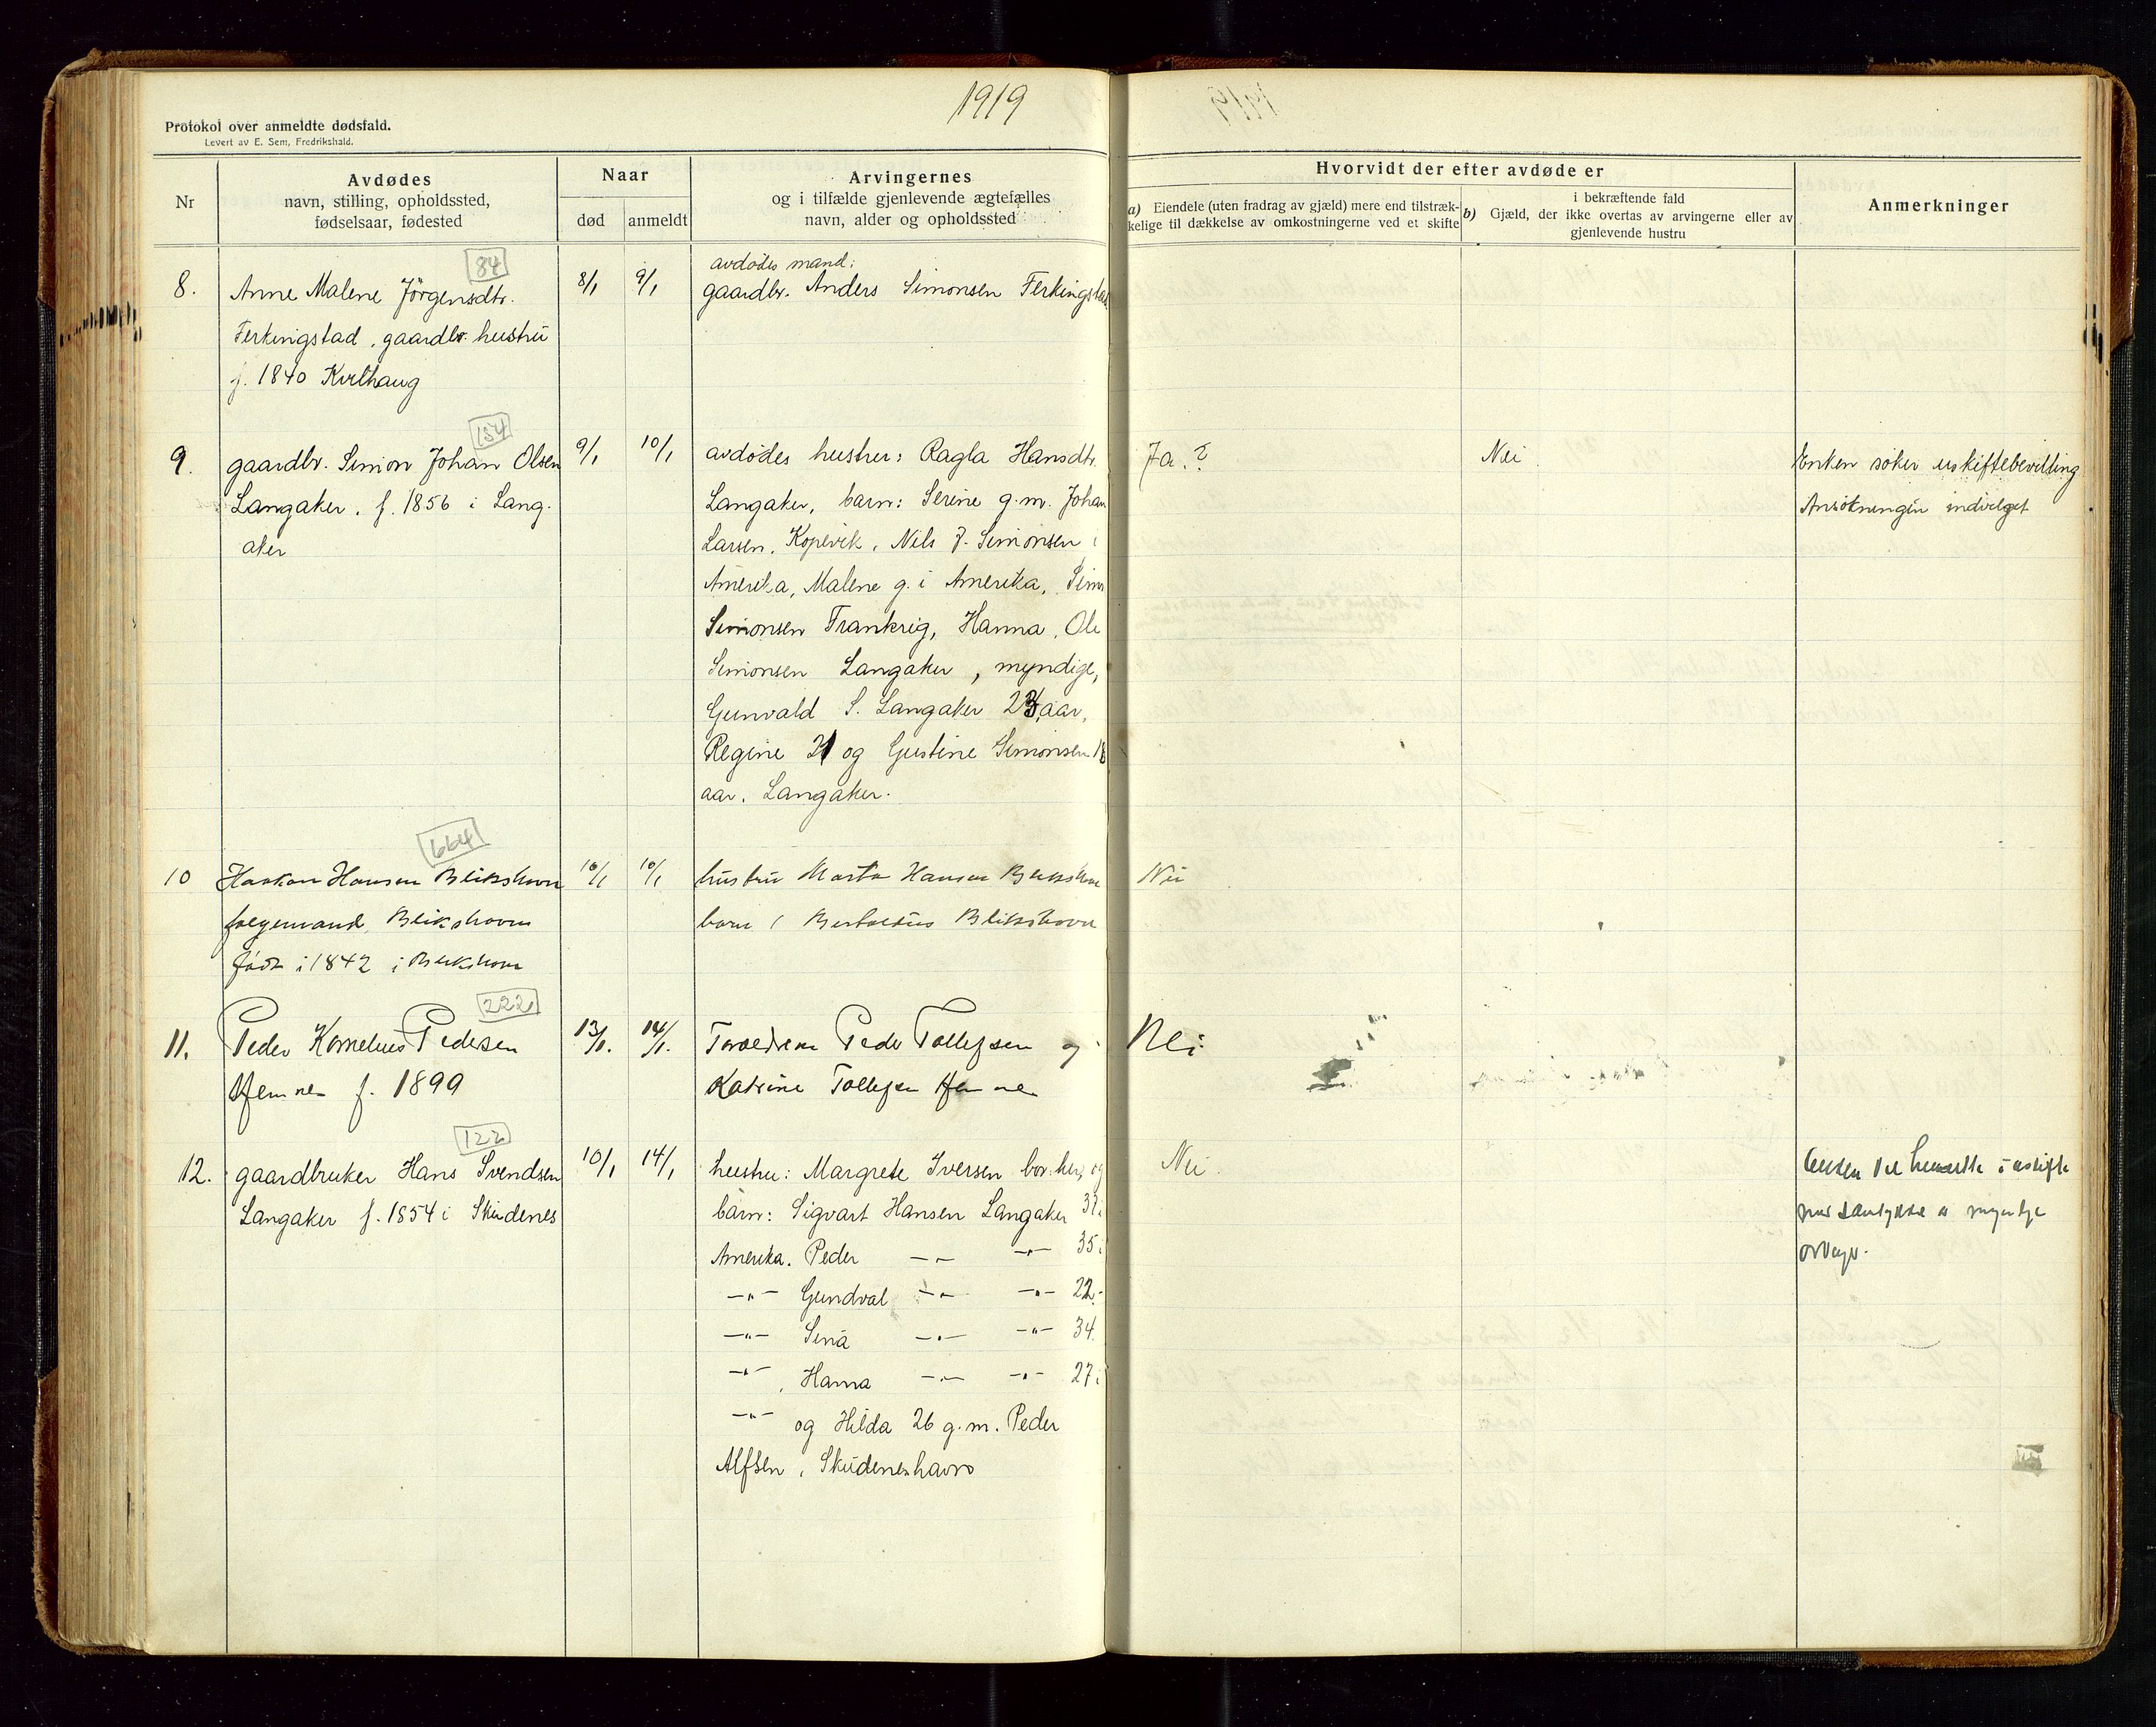 1919
Protokol over anmeldte dødsfald.
Levert av E. Sem, Fredrikshald.
Nr
Avdødes
navn, stilling, opholdssted,
fødselsaar, fødested
Naar
død
anmeldt
Arvingernes
og i tilfælde gjenlevende ægtefælles
navn, alder og opholdssted
Hvorvidt der efter avdøde er
a) Eiendele (uten fradrag av gjæld) mere end tilstræk-
kelige til dækkelse av omkostningerne ved et skifte
i bekræftende fald
b) Gjæld, der ikke overtas av arvingerne eller av
gjenlevende hustru
Anmerkninger
84
8.
Anne Malene Jörgensdtr.
Ferkingstad, gaardbr. hustru
f. 1840 Kvilhaug
8/1
9/1
avdødes mand:
gaardbr. Anders Simonsen Ferkingstad
154
9.
gaardbr. Simon Johan Olsen
Langaker. f. 1856 i Lang-
aker
9/1
10/1
avdödes hustru: Ragla Hansdtr.
Langaker, barn: Serine g.m. Johan
Larsen, Kopervik, Nils J. Simonsen i
Amerika, Malene g. i Amerika, Simon
Simonsen Frankrig, Hanna, Ole
Simonsen Langaker, myndige,
Gunvald S. Langaker 23 aar,
Regine 21 og Gustine Simonsen 18
aar. Langaker.
Ja.?
Nei
Enken söker uskiftebevilling
Ansökningen indvilget
664
10
Haakon Hansen Blikshavn
følgemand Blikshavn
født i 1842 i Blikshavn
10/1
10/1
hustru Marta Hansen Blikshavn
barn Blikshavn
Nei
222
11.
Peder Kornelius Pedersen
f. 1899
13/1.
14/1.
Forældrene Peder Tollefsen og
Katrine Tollefsen
Nei
122
12.
gaardbruker Hans Svendsen
Langaker f. 1854 i Skudenes
10/1
14/1
hustru: Margrete Iversen bor her, og
barn: Sigvart Hansen Langaker 37 i
Amerika. Peder —"— —"— 35 i
—"— Gundval —"— —"— 22 i
—"— Sina —"— —"— 34
—"— Hanna —"— —"— 27 i
—"— og Hilda 26 g.m. Peder
Alfsen, Skudeneshavn
Nei
Enken vil hensitte i uskifte
med samtykke av myndige